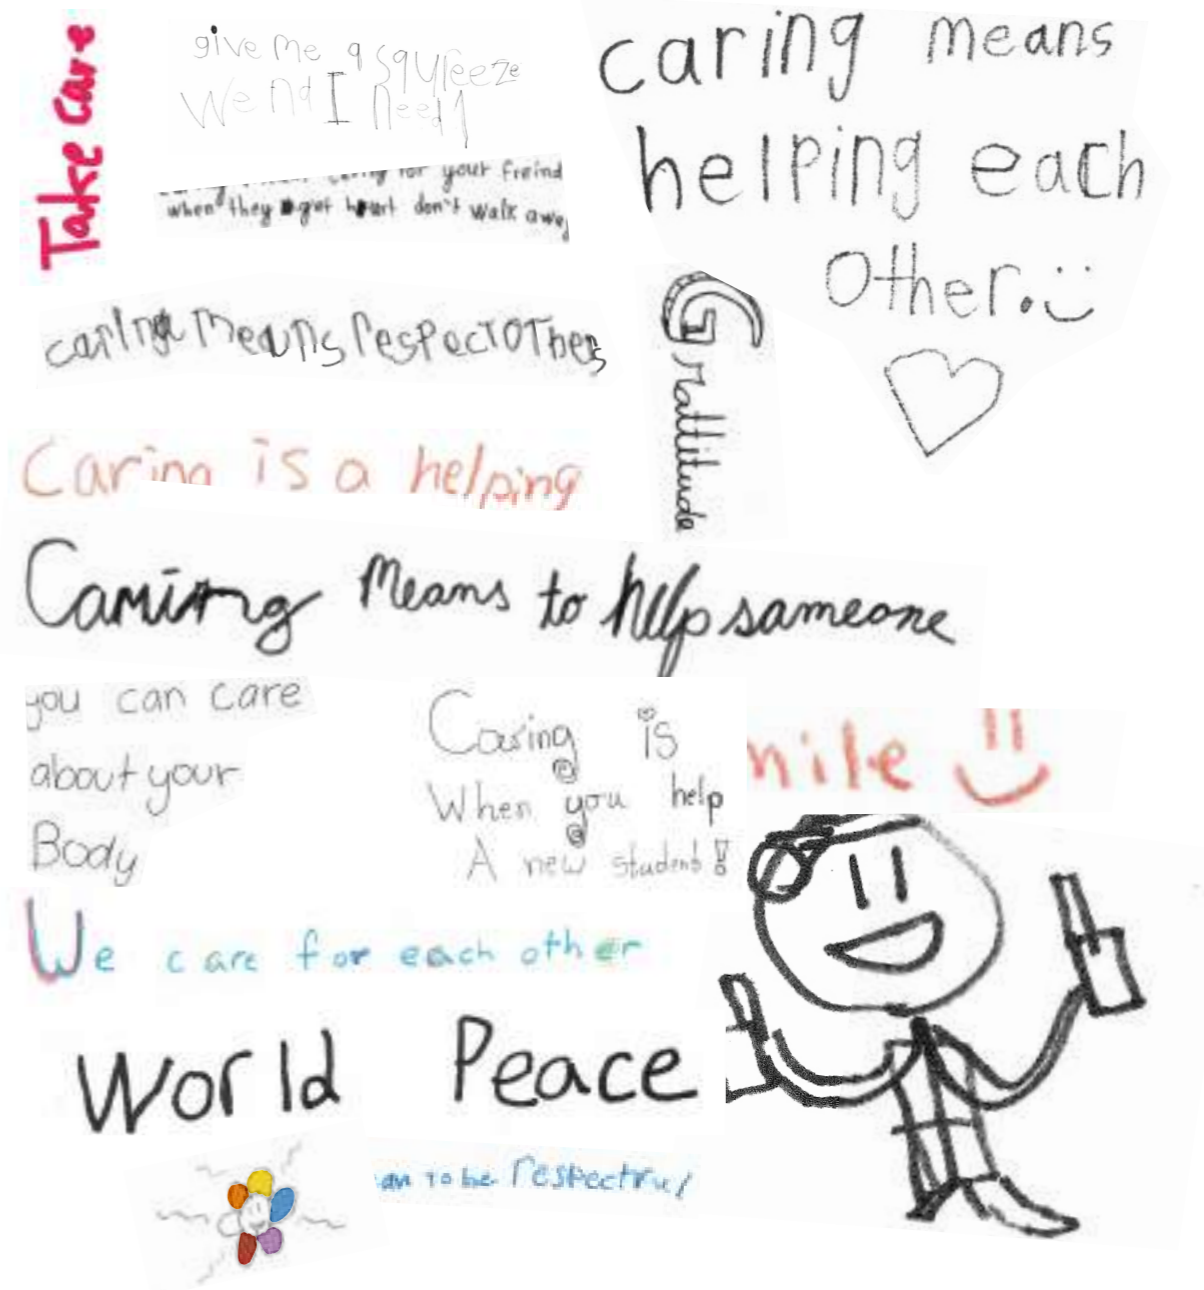 Take Care
give me a squreeze
Wend I need 1
for your freind
when they get hourt don't walk away
caring means
helping each
Other.
caring Means respect others
Grattitude
Caring is a helping
Caring Means to help sameone
you can care
about your
Body
Caring is
When you help
A new student!
mile
We care for each other
World Peace
an to be respectful